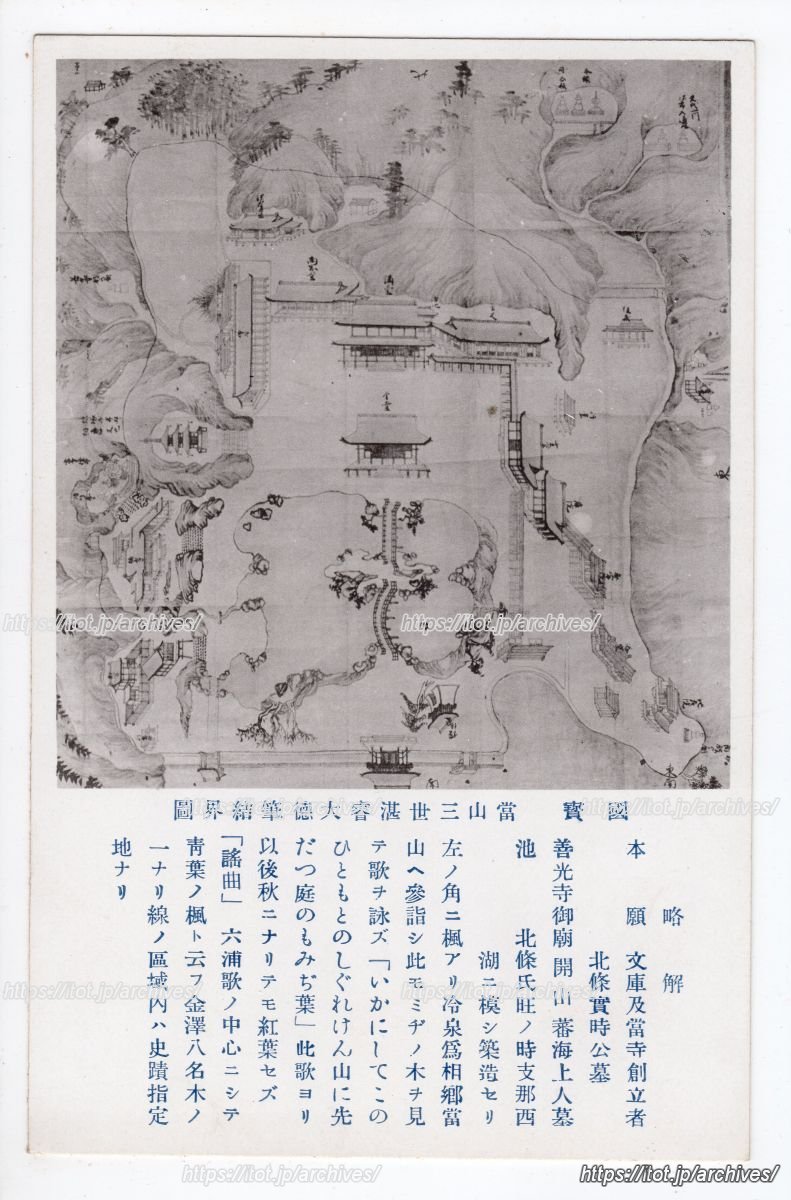 國寶 當山三世湛睿大德筆結界圖
略解
本願 文庫及當寺創立者
北條實時公墓
善光寺御廟 開山 審海上人墓
池 北條氏旺ノ時支那西
湖ニ模シ築造セリ
左ノ角ニ楓アリ冷泉爲相鄉當
山ヘ參詣シ此モミヂノ木ヲ見
テ歌ヲ詠ズ「いかにしてこの
ひともとのしぐれけん山に先
だつ庭のもみぢ葉」此歌ヨリ
以後秋ニナリテモ紅葉セズ
「謠曲」六浦歌ノ中心ニシテ
靑葉ノ楓ト云フ金澤八名木ノ
一ナリ線ノ區域內ハ史蹟指定
地ナリ
金堂
講堂
北
東
南
東南
https://itot.jp/archives/
https://itot.jp/archives/
https://itot.jp/archives/
https://itot.jp/archives/
https://itot.jp/archives/
https://itot.jp/archives/
https://itot.jp/archives/
https://itot.jp/archives/
https://itot.jp/archives/
https://itot.jp/archives/
https://itot.jp/archives/